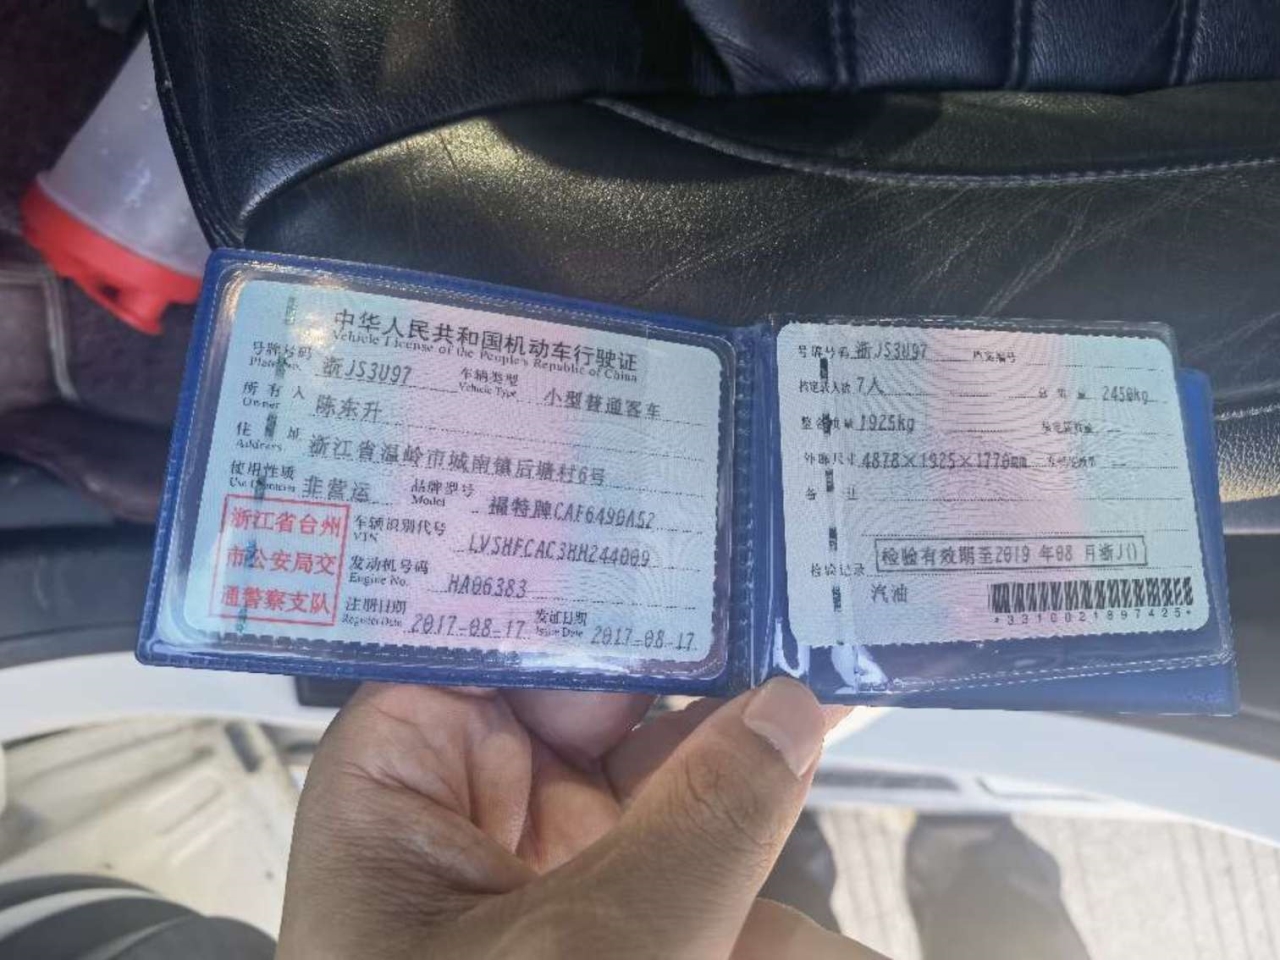 中华人民共和国机动车行驶证
Vehicle License of the People's Republic of China
号牌号码 浙JS3U97 车辆类型 小型普通客车
Plate No. Vehicle Type
所有人 陈东升
Owner
住址 浙江省温岭市城南镇后塘村6号
Address
使用性质 非营运 品牌型号 撮特牌CAF6490A52
Use Character Model
浙江省台州
市公安局交
通警察支队
车辆识别代号 LVSHFCAC3HH244009
VIN
发动机号码 HA06383
Engine No.
注册日期 2017-08-17 发证日期 2017-08-17
Register Date Issue Date
号牌号码 浙JS3U97 档案编号
核定载人数 7人 总质量 2450kg
整备质量 1925kg 核定载质量 --
外廓尺寸 4878×1925×1770mm --
备注
检验记录 检验有效期至2019年08月浙J()
汽油
*3310021897425*